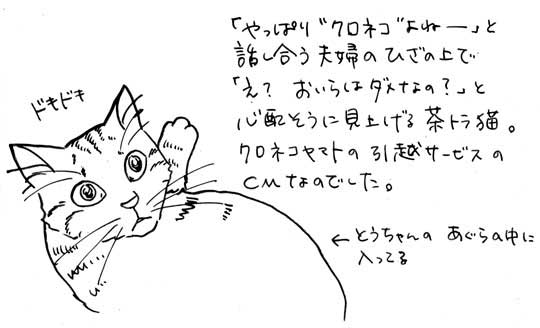 「やっぱり“クロネコ”よねー」と
話し合う夫婦のひざの上で
「え? おいらはダメなの?」と
心配そうに見上げる茶トラ猫。
クロネコヤマトの引越サービスの
CMなのでした。
ドキドキ
←とうちゃんの あぐらの中に
入ってる